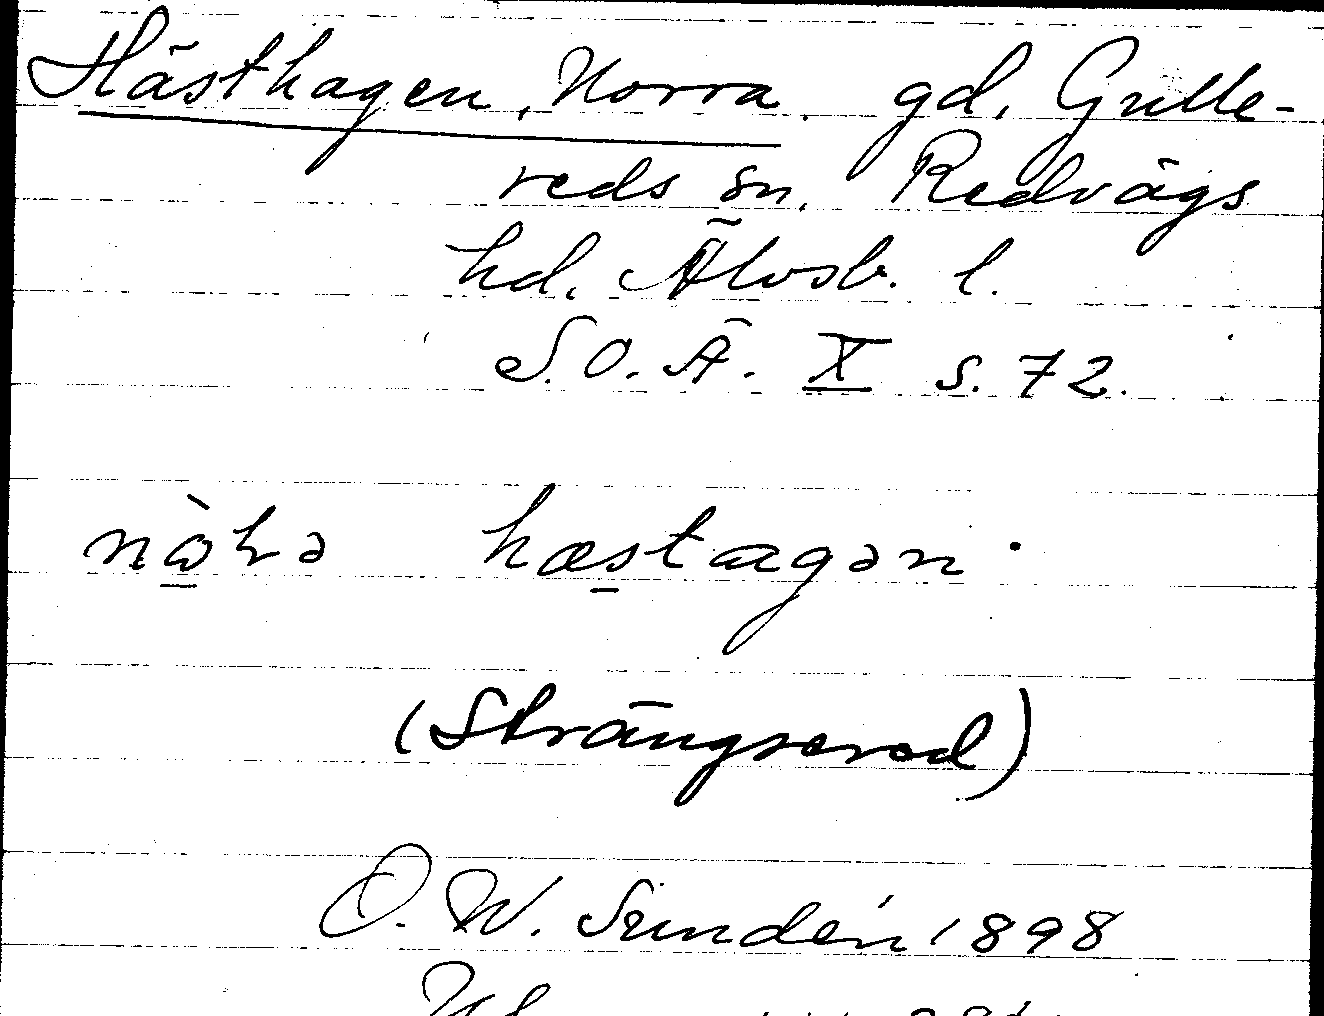 Hästhagen, Norra, gd, Gulle-
reds sn, Redvägs
hd, Älvsb. l.
S.O.Ä. X s. 72.
hæstagən
(Strängsered)
D. W. Sundén 1898